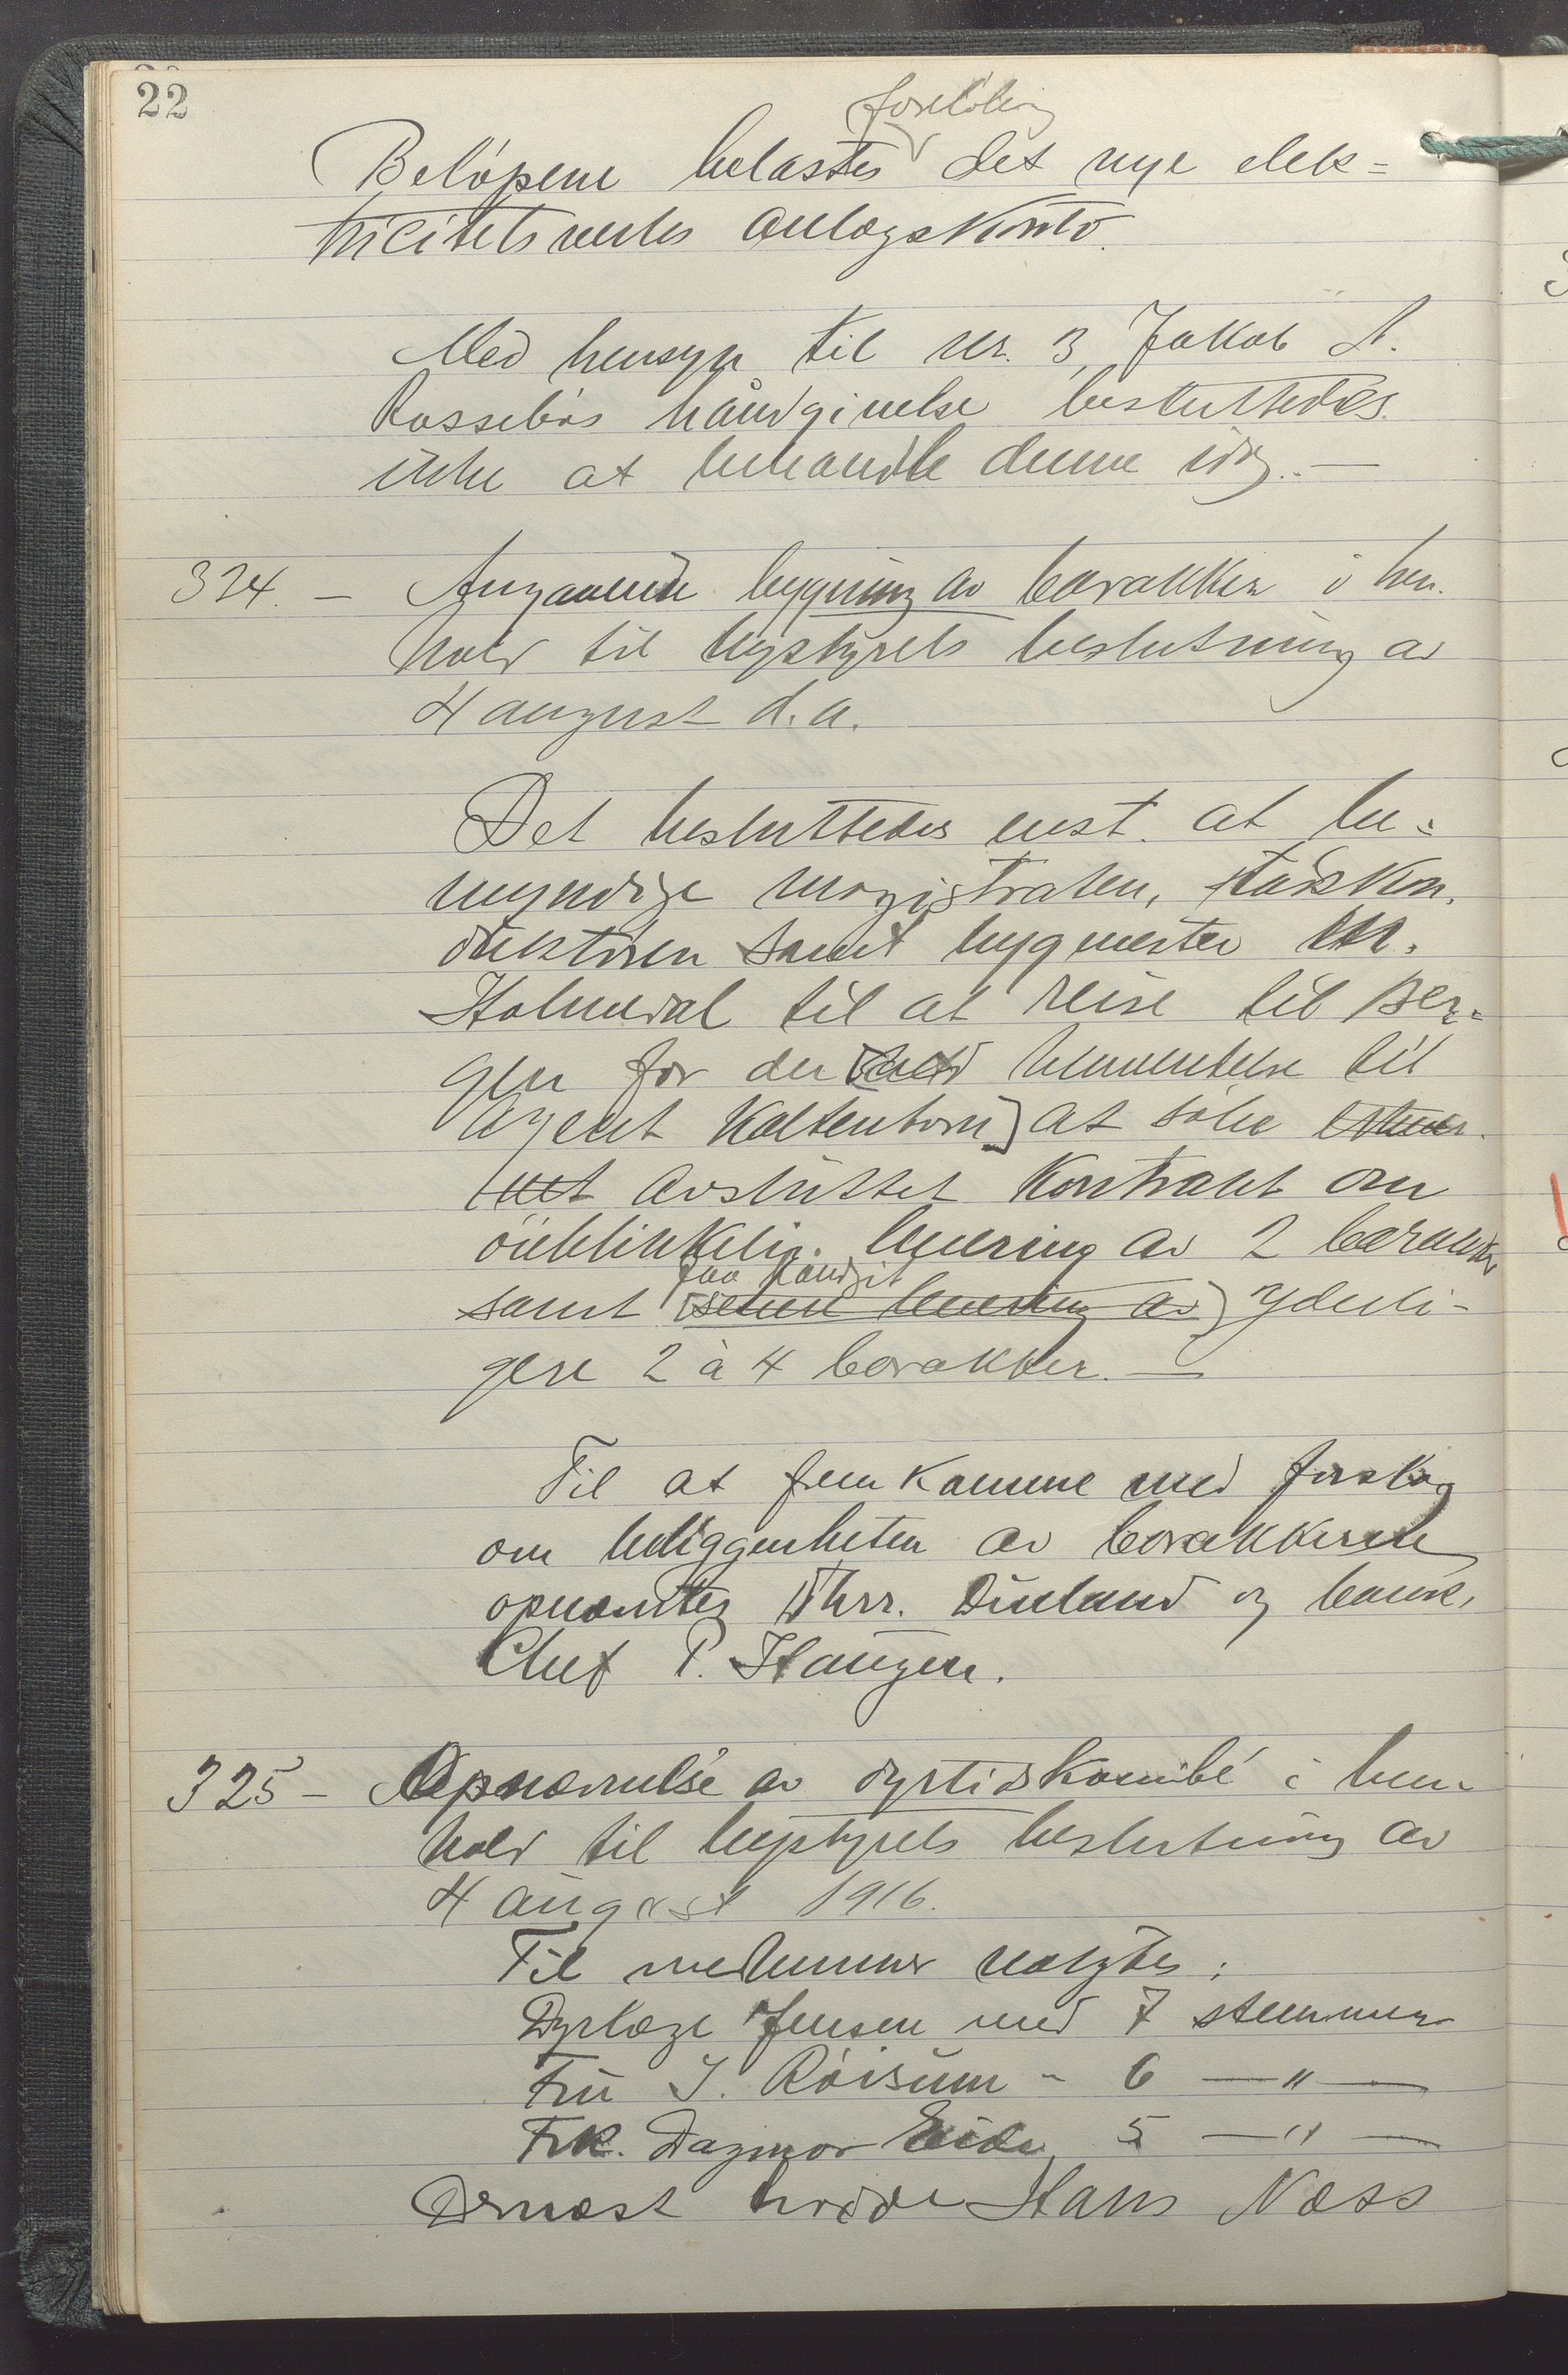 22
foreløbig
Beløpene belastes det nye elek=
tricitetsverks anlægskonto.
Med hensyn til nr. 3, Jakob A.
Rossebøs håndgivelse besluttedes
ikke at behandle denne idag. —
324. — Angaaende bygning av barakker i hen-
hold til bystyrets beslutning av
4 august d.a.
Det besluttedes enst. at be=
myndige magistraten, stadskon-
duktøren samt bygmester M.
Holmedal til at reise til Ber=
gen for der [ved henvendelse til
agent Kaltenborn] at søke
avsluttet kontrakt om
øieblikkelig levering av 2 barakker
faa haandgit
samt [senere levering av] yderli-
gere 2 à 4 barakker. —
Til at fremkomme med forslag
om beliggenheten av barakkerne
opnævntes Dhrr. Dueland og bank-
chef P. Haugen.
325 — Opnævnelse av dyrtidskomité i hen-
hold til bystyrets beslutning av
4 august 1916.
Til medlemmer valgtes:
Dyrlæge Jensen med 7 stemmer
Fru J. Røisum - 6 — " —
Frk. Dagmar Eide 5 — " —
Dernæst hadde Hans Næss